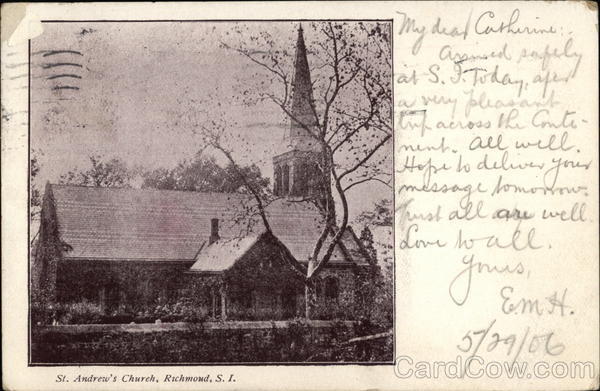 My dear Catherine:
Arrived safely
at S. F. Today, after
a very pleasant
trip across the Conti-
nent. All well.
Hope to deliver your
message tomorrow.
Trust all are well.
Love to all.
Yours,
E.M.H.
5/29/06
St. Andrew's Church, Richmond, S. I.
CardCow.com